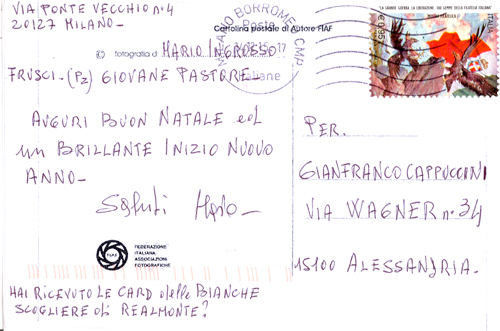 VIA PONTE VECCHIO n°4
20127 MILANO-
Cartolina postale di Autore FIAF
© fotografia di MARIO INGROSSO
FRUSCI-(PZ) GIOVANE PASTORE-
MILANO BORROMEO CMP
Poste
Italiane
LA GRANDE GUERRA. LA LIBERAZIONE
ITALIA
€0,95
AUGURI BUON NATALE ed
un BRILLANTE INIZIO NUOVO
ANNO-
Saluti Mario-
PER.
GIANFRANCO CAPPUCCINI
VIA WAGNER n.34
15100 ALESSANDRIA-
FIAF
FEDERAZIONE
ITALIANA
ASSOCIAZIONI
FOTOGRAFICHE
HAI RICEVUTO LE CARD delle BIANCHE
SCOGLIERE di REALMONTE?